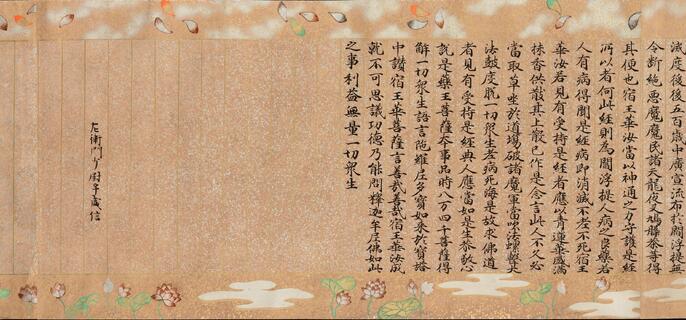 滅度後後五百歳中廣宣流布於閻浮提無
令斷絶惡魔魔民諸天龍夜叉鳩槃荼等得
其便也宿王華汝當以神通之力守護是經
所以者何此經則為閻浮提人病之良藥若
人有病得聞是經病即消滅不老不死宿王
華汝若見有受持是經者應以青蓮華盛滿
抹香供散其上散已作是念言此人不久必
當取草坐於道場破諸魔軍當吹法螺擊大
法鼓度脱一切衆生老病死海是故求佛道
者見有受持是經典人應當如是生恭敬心
説是藥王菩薩本事品時八万四千菩薩得
解一切衆生語言陀羅尼多寶如來於寶塔
中讃宿王華菩薩言善哉善哉宿王華汝成
就不可思議功德乃能問釋迦牟尼佛如此
之事利益無量一切衆生
左衛門少尉平盛信